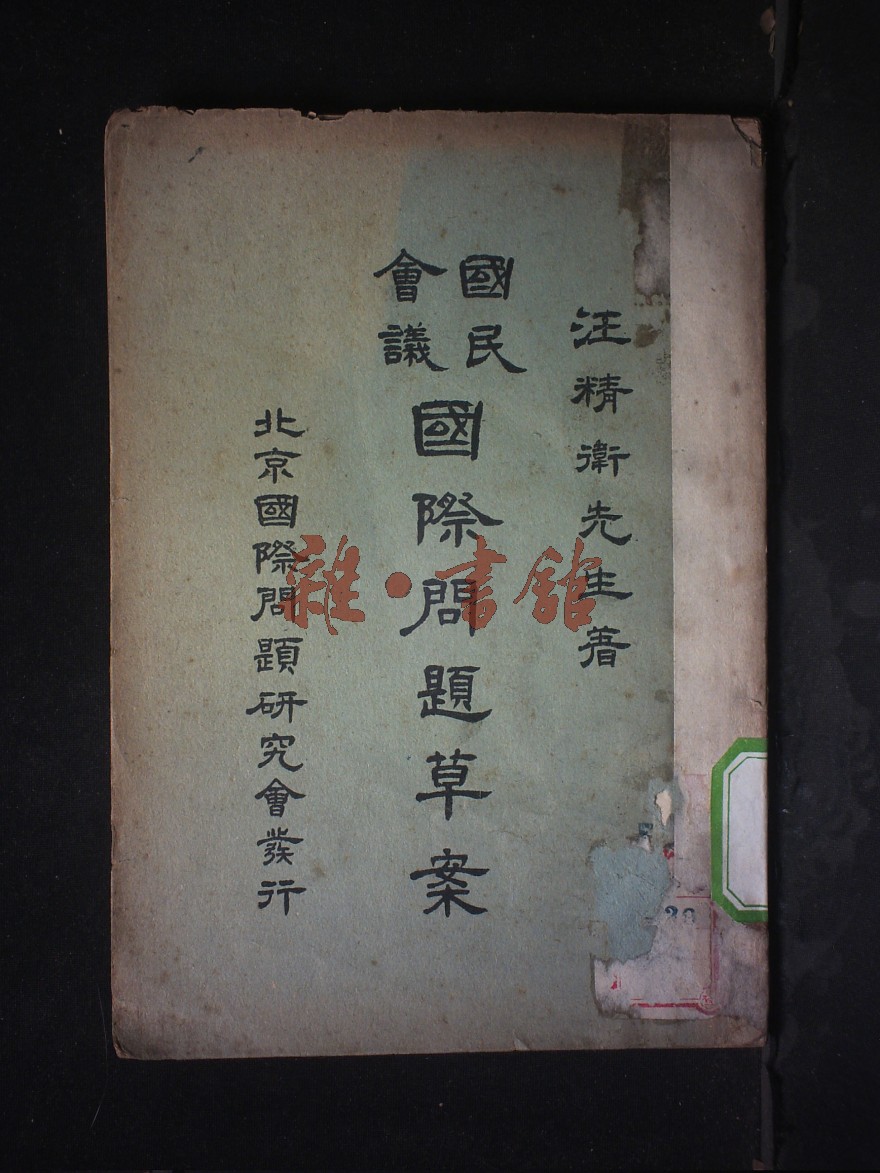 汪精衛先生著
國民會議
國際問題草案
北京國際問題研究會發行
雜·書館